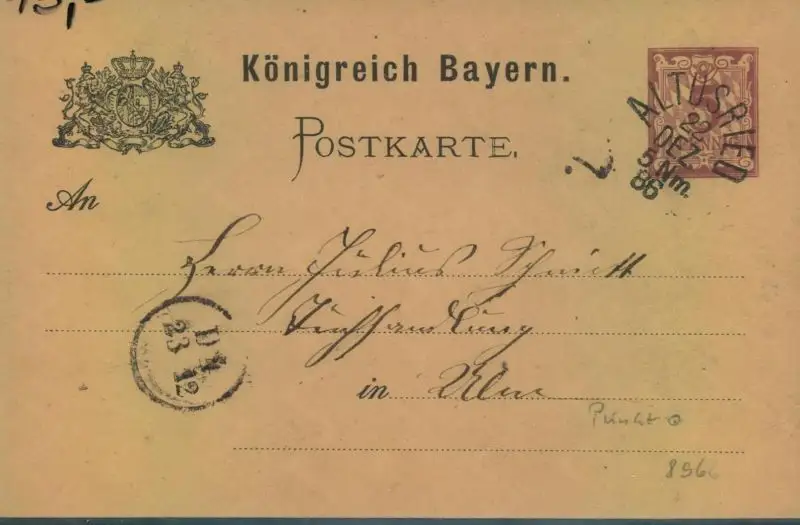 Königreich Bayern.
POSTKARTE.
ALTUSRIED
22
DEZ
5 Nm.
86
An
Herrn Julius Schmitt
Tuchhandlung
in Ulm
23
12
Punkt